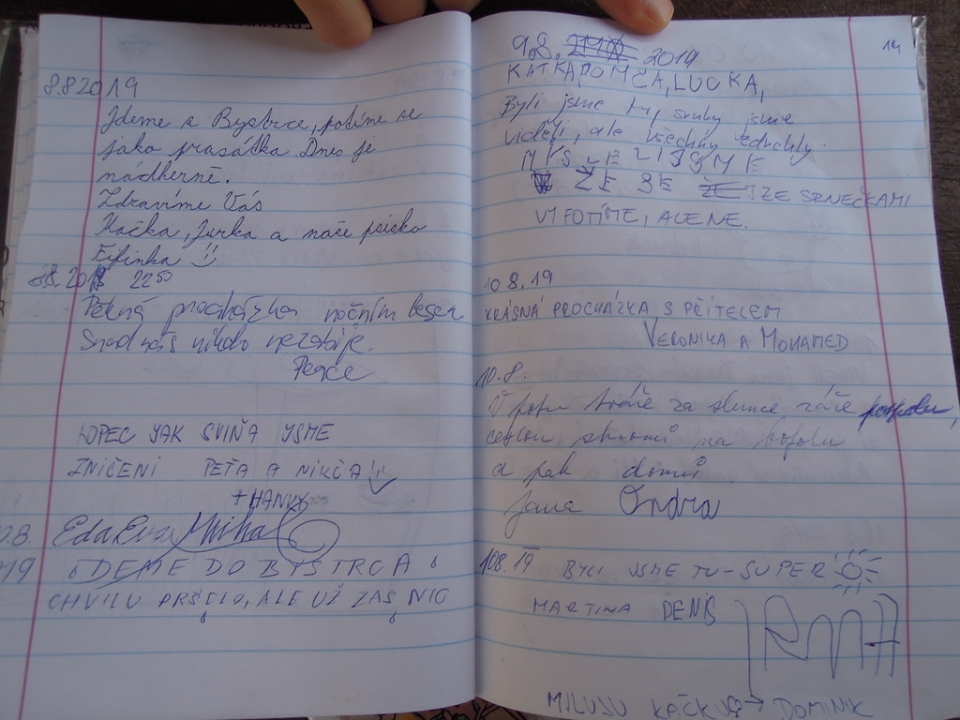 8.8.2019
Jdeme z Bystrce, potíme se
jako prasátka. Dnes je
nádherně.
Zdravíme Vás
Kačka, Jurka a naše psisko
Fifinka
22 50
Pěkná procházka nočním lesem
Snad nás nikdo nezabije.
Peace
KOPEC JAK SVIŇA JSME
ZNIČENÍ PEŤA A NIKČA
+ HANKY
Eda Eva Michal
JDEME DO BYSTRCA
CHVILU PRŠELO, ALE UŽ ZAS NIC
14
9.8. 2019
KATKA, DOMČA, LUCKA,
Byli jsme tu, srnky jsme
viděli, ale všechny zdrhly.
MYSLELI JSME
ŽE SE ZE SRNEČKAMI
VYFOTÍME, ALE NE.
10.8.19
KRÁSNÁ PROCHÁZKA S PŘÍTELEM
VERONIKA A MOHAMED
10.8.
V potu tváře za slunce záře
cestou stromů na
a pak domů
Jana Ondra
10.8.19 BYLI JSME TU - SUPER
MARTINA DENIS
MILUJU KAČKU DOMINIK